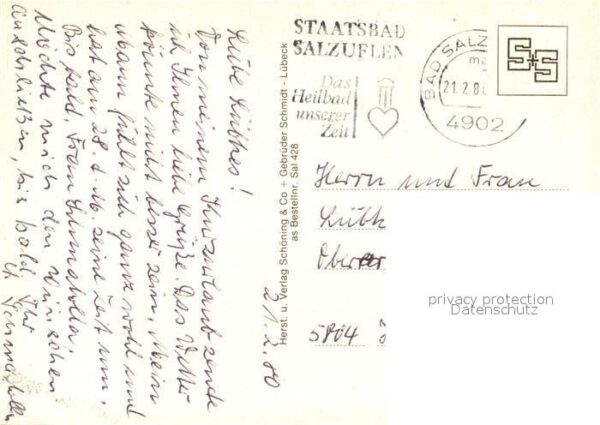 STAATSBAD
SALZUFLEN
Das
Heilbad
unserer
Zeit
BAD SALZ
21.2.8
4902
S+S
Herst. u. Verlag Schöning & Co + Gebrüder Schmidt - Lübeck
as Bestellnr. Sal 428
21.2.80
Liebe Lüthes!
Von meinem Kurzurlaub sende
ich Ihnen liebe Grüße. Das Wetter
könnte nicht besser sein. Mein
Mann fühlt sich ganz wohl und
hat am 28. d. M. seine Zeit um.
Bis bald, Frau
Möchte mich den Wünschen
anschließen, bis bald, Ihr
Herrn und Frau
Lüth
Ober
5804
privacy protection
Datenschutz